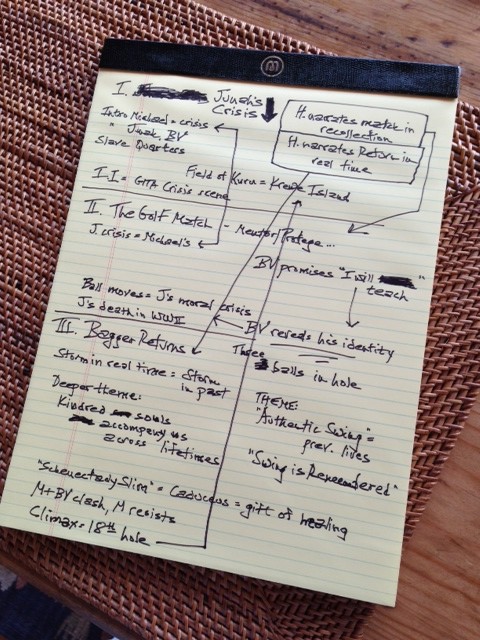 I. Junah's
Crisis
H. narrates match in
recollection
H. narrates Return in
real time
Intro Michael = crisis
" Junah, BV
Slave Quarters
Field of Kuru = Krewe Island
I.I = GITA Crisis scene
II. The Golf Match - Mentor/Protege...
J. crisis = Michael's
BV promises "I will
teach"
Ball moves = J's moral crisis
J's death in WWII
BV reveals his identity
III. Bagger Returns
Three
balls in hole
Storm in real time = Storm
in past
Deeper theme:
Kindred souls
accompany us
across lifetimes
THEME:
"Authentic Swing" =
prev. lives
"Swing is Remembered"
"Schenectady Slim" = Caduceus = gift of healing
M + BV clash, M resists
Climax = 18th hole